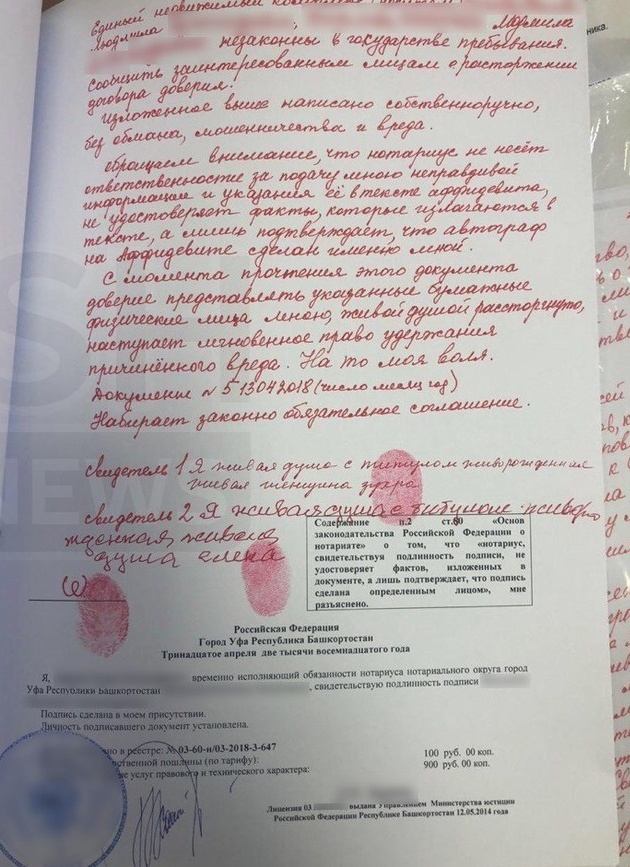 Единый недвижимый
Людмила Людмила
незаконны в государстве пребывания.
Сообщить заинтересованным лицам о расторжении
договора доверия.
Изложенное выше написано собственноручно,
без обмана, мошенничества и вреда.
Обращаем внимание, что нотариус не несёт
ответственности за подачу мною неправдивой
информации и указания её в тексте аффидевита,
не удостоверяет факты, которые излагаются в
тексте, а лишь подтверждает, что автограф
на Аффидевите сделан именно мной.
С момента прочтения этого документа
доверие представлять указанные бумажные
физические лица мною, живой душой расторгнуто,
наступает мгновенное право удержания
причинённого вреда. На то моя воля.
Документ №513042018 (число месяц год)
Набирает законно обязательное соглашение.
свидетель 1 Я живая душа с титулом живорожденная
живая женщина зухра
свидетель 2 Я живая душа с титулом живоро
жденная живая
душа елена
Содержание п.2 ст.80 «Основ
законодательства Российской Федерации о
нотариате» о том, что «нотариус,
свидетельствуя подлинность подписи, не
удостоверяет фактов, изложенных в
документе, а лишь подтверждает, что подпись
сделана определенным лицом», мне
разъяснено.
Российская Федерация
Город Уфа Республика Башкортостан
Тринадцатое апреля две тысячи восемнадцатого года
Я, временно исполняющий обязанности нотариуса нотариального округа город
Уфа Республики Башкортостан , свидетельствую подлинность подписи
Подпись сделана в моем присутствии.
Личность подписавшего документ установлена.
но в реестре: № 03-60-н/03-2018-3-647
рственной пошлины (по тарифу): 100 руб. 00 коп.
ие услуг правового и технического характера: 900 руб. 00 коп.
Лицензия 03 выдана Управлением Министерства юстиции
Российской Федерации Республике Башкортостан 12.05.2014 года
SH
NEWS
ника.